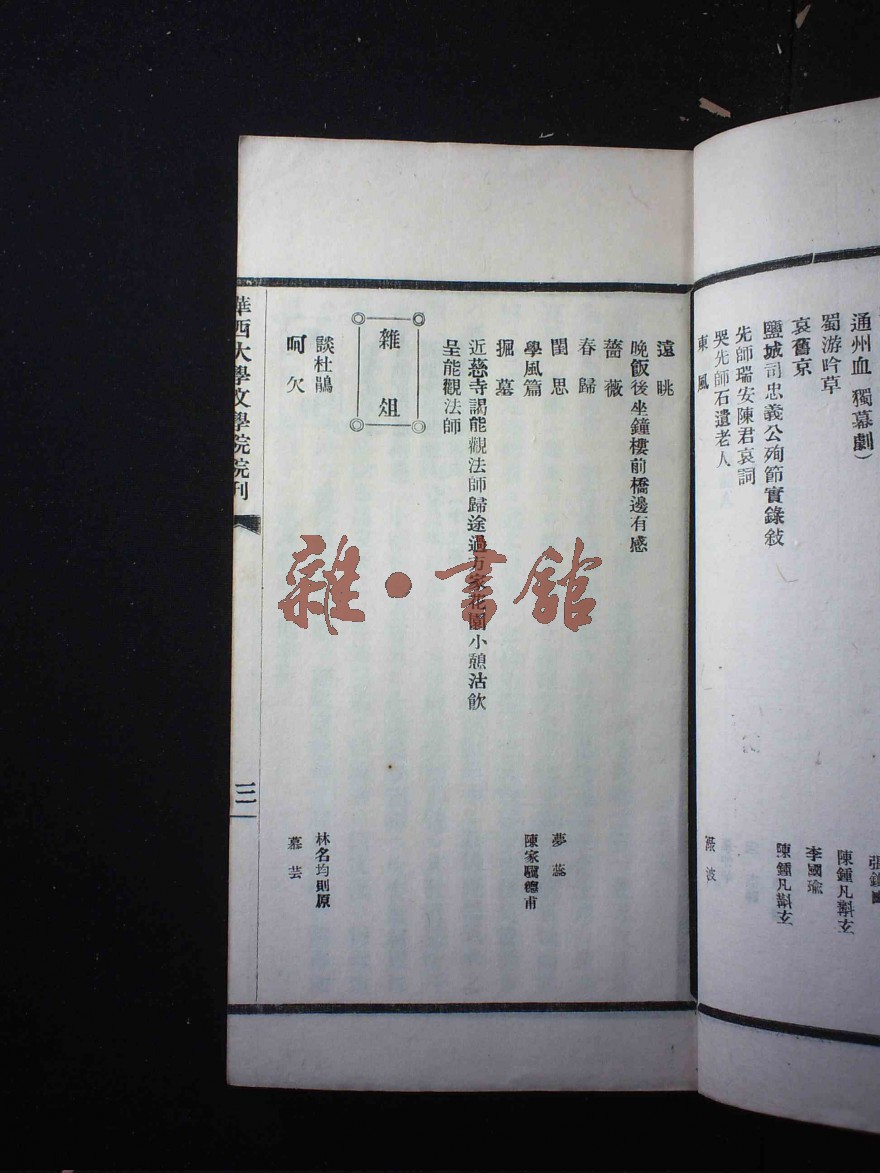 通州血 獨幕劇）
蜀游吟草
陳鍾凡斠玄
哀舊京
李國瑜
鹽城司忠義公殉節實錄敍
陳鍾凡斠玄
先師瑞安陳君哀詞
哭先師石遺老人
東風
波
遠眺
晚飯後坐鐘樓前橋邊有感
薔薇
春歸
閨思
夢蕊
學風篇
陳家驥德甫
掘墓
近慈寺謁能觀法師歸途過方家花園小憩沽飲
呈能觀法師
雜俎
談杜鵑
林名均則原
呵欠
慕芸
華西大學文學院院刊
三
雜·書館